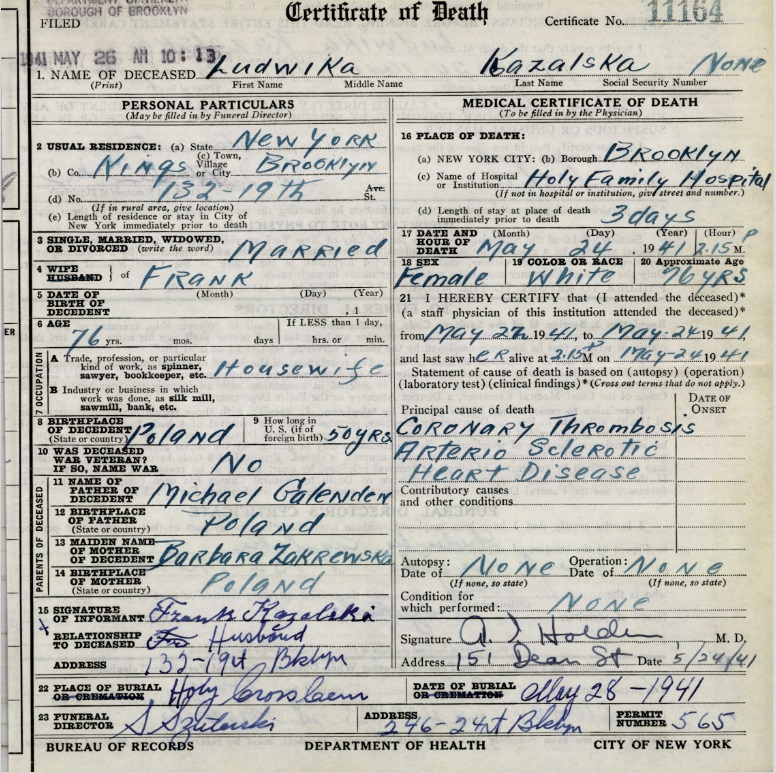 DEPARTMENT OF HEALTH
BOROUGH OF BROOKLYN
FILED
1941 MAY 26 AM 10:13
Certificate of Death
Certificate No. 11164
1. NAME OF DECEASED Ludwika Kazalska None
(Print) First Name Middle Name Last Name Social Security Number
PERSONAL PARTICULARS
(May be filled in by Funeral Director)
2 USUAL RESIDENCE: (a) State New York
(b) Co. Kings (c) Town, Village or City Brooklyn
(d) No. 132-19th Ave. St.
(If in rural area, give location)
(e) Length of residence or stay in City of New York immediately prior to death
3 SINGLE, MARRIED, WIDOWED, OR DIVORCED (write the word) Married
4 WIFE HUSBAND } of Frank
5 DATE OF BIRTH OF DECEDENT (Month) (Day) (Year) , 1
6 AGE 76 yrs. mos. days If LESS than 1 day, hrs. or min.
7 OCCUPATION
A Trade, profession, or particular kind of work, as spinner, sawyer, bookkeeper, etc. Housewife
B Industry or business in which work was done, as silk mill, sawmill, bank, etc.
8 BIRTHPLACE OF DECEDENT (State or country) Poland
9 How long in U. S. (if of foreign birth) 50yrs
10 WAS DECEASED WAR VETERAN? IF SO, NAME WAR No
PARENTS OF DECEASED
11 NAME OF FATHER OF DECEDENT Michael Galenden
12 BIRTHPLACE OF FATHER (State or country) Poland
13 MAIDEN NAME OF MOTHER OF DECEDENT Barbara Zakrewska
14 BIRTHPLACE OF MOTHER (State or country) Poland
15 SIGNATURE OF INFORMANT Frank Kazalski
RELATIONSHIP TO DECEASED Husband
ADDRESS 132-19st Bklyn
MEDICAL CERTIFICATE OF DEATH
(To be filled in by the Physician)
16 PLACE OF DEATH:
(a) NEW YORK CITY: (b) Borough Brooklyn
(c) Name of Hospital or Institution Holy Family Hospital
(If not in hospital or institution, give street and number.)
(d) Length of stay at place of death immediately prior to death 3 days
17 DATE AND HOUR OF DEATH (Month) (Day) (Year) (Hour) May 24, 1941 2.15 P M.
18 SEX Female 19 COLOR OR RACE White 20 Approximate Age 76 yrs
21 I HEREBY CERTIFY that (I attended the deceased)*
(a staff physician of this institution attended the deceased)*
from May 1941, to May-24 1941,
and last saw her alive at 2.15 P M on May-24 1941
Statement of cause of death is based on (autopsy) (operation)
(laboratory test) (clinical findings)* (Cross out terms that do not apply.)
Principal cause of death DATE OF ONSET
Coronary Thrombosis
Arterio Sclerotic
Heart Disease
Contributory causes and other conditions
Autopsy: Date of None Operation: Date of None
(If none, so state) (If none, so state)
Condition for which performed: None
Signature Holden M. D.
Address 151 Dean St Date 5/24/41
22 PLACE OF BURIAL OR CREMATION Holy Cross Cem DATE OF BURIAL OR CREMATION May 28-1941
23 FUNERAL DIRECTOR ADDRESS 246-24st Bklyn PERMIT NUMBER 565
BUREAU OF RECORDS DEPARTMENT OF HEALTH CITY OF NEW YORK